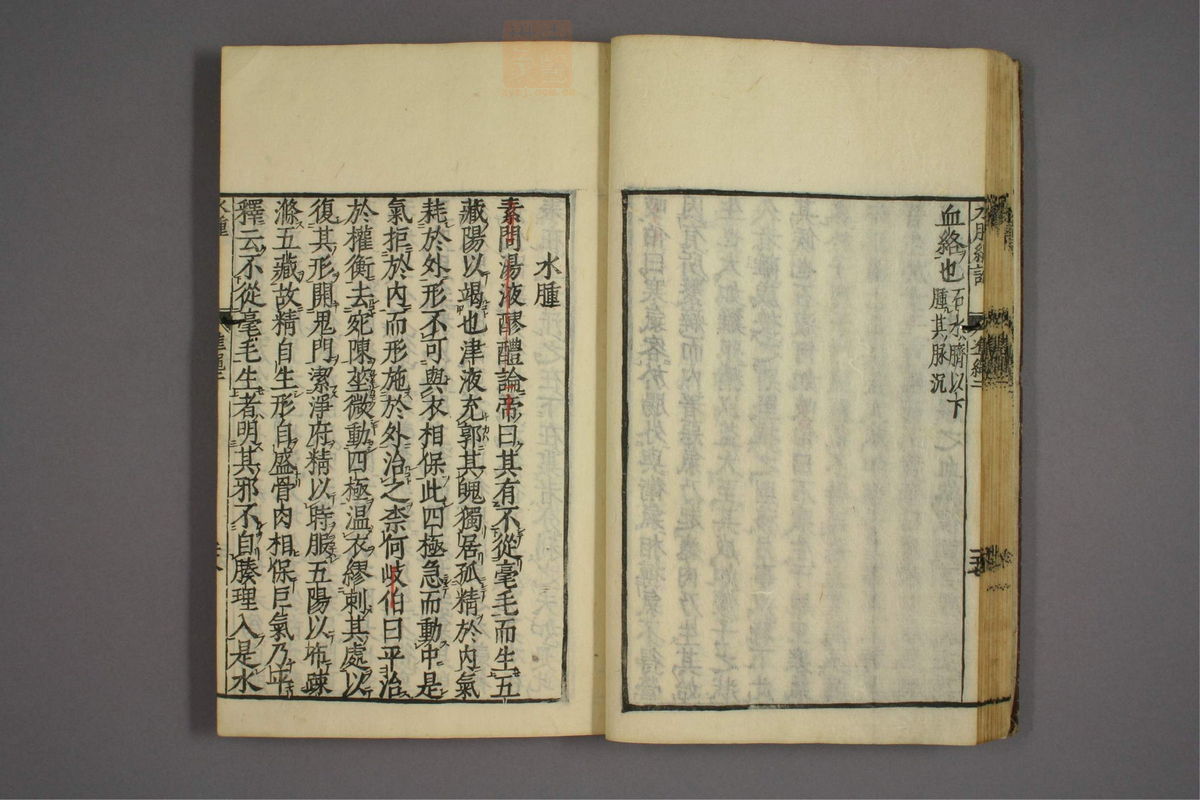 血絡也石水臍以下
腫其脉沉
水腫
素問湯液醪醴論帝曰其有不從毫毛而生五
藏陽以竭也津液充郭其魄獨居孤精於内氣
耗於外形不可與衣相保此四極急而動中是
氣拒於内而形施於外治之柰何岐伯曰平治
於權衡去宛陳莝微動四極温衣繆刺其處以
復其形開鬼門潔淨府精以時服五陽以布疎
滌五藏故精自生形自盛骨肉相保巨氣乃平
釋云不從毫毛生者明其邪不自腠理入是水
水腫